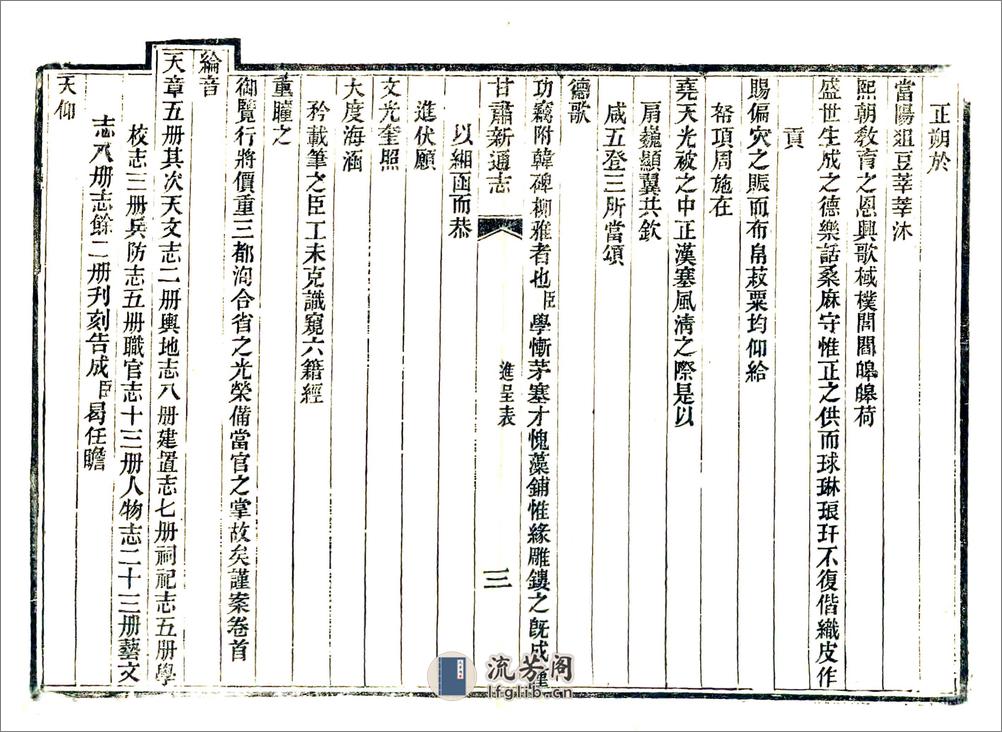 正朔於
當陽俎豆莘莘沐
熙朝教育之恩興歌棫樸閭閻皞皞荷
盛世生成之德樂話桑麻守惟正之供而球琳琅玕不復偕織皮作
貢
賜偏災之賑而布帛菽粟均仰給
帑項周施在
堯天光被之中正漢塞風淸之際是以
肩巍顯翼共欽
咸五登三所當頌
德歌
功竊附韓碑柳雅者也臣學慚茅塞才愧藻鋪惟緣雕鏤之旣成謹
甘肅新通志
進呈表
三
以緗函而恭
進伏願
文光奎照
大度海涵
矜載筆之臣工未克識窺六籍經
重瞳之
御覽行將價重三都洵合省之光榮備當官之掌故矣謹案卷首
綸音
天章五册其次天文志二册輿地志八册建置志七册祠祀志五册學
校志三册兵防志五册職官志十三册人物志二十三册藝文
志八册志餘二册刊刻告成臣曷任瞻
天仰
流芳阁
lfglib.cn